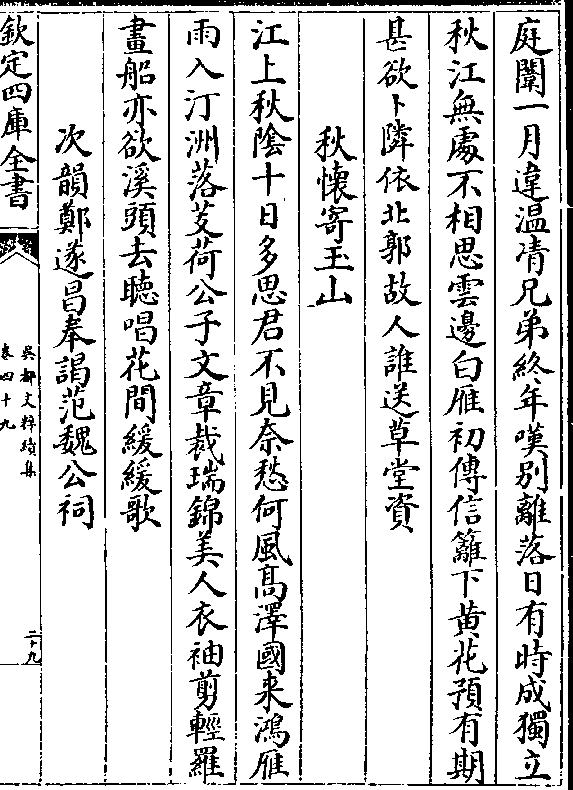 庭闈一月違温凊兄弟終年嘆别離落日有時成獨立
秋江無處不相思雲邊白雁初傳信籬下黄花預有期
甚欲卜隣依北郭故人誰送草堂資
秋懷寄玉山
江上秋陰十日多思君不見奈愁何風髙澤國来鴻雁
雨入汀洲落芰荷公子文章裁瑞錦美人衣袖剪輕羅
畫船亦欲溪頭去聽唱花間緩緩歌
次韻鄭遂昌奉謁范魏公祠
欽定四庫全書
吳都文粹續集
卷四十九
二十九